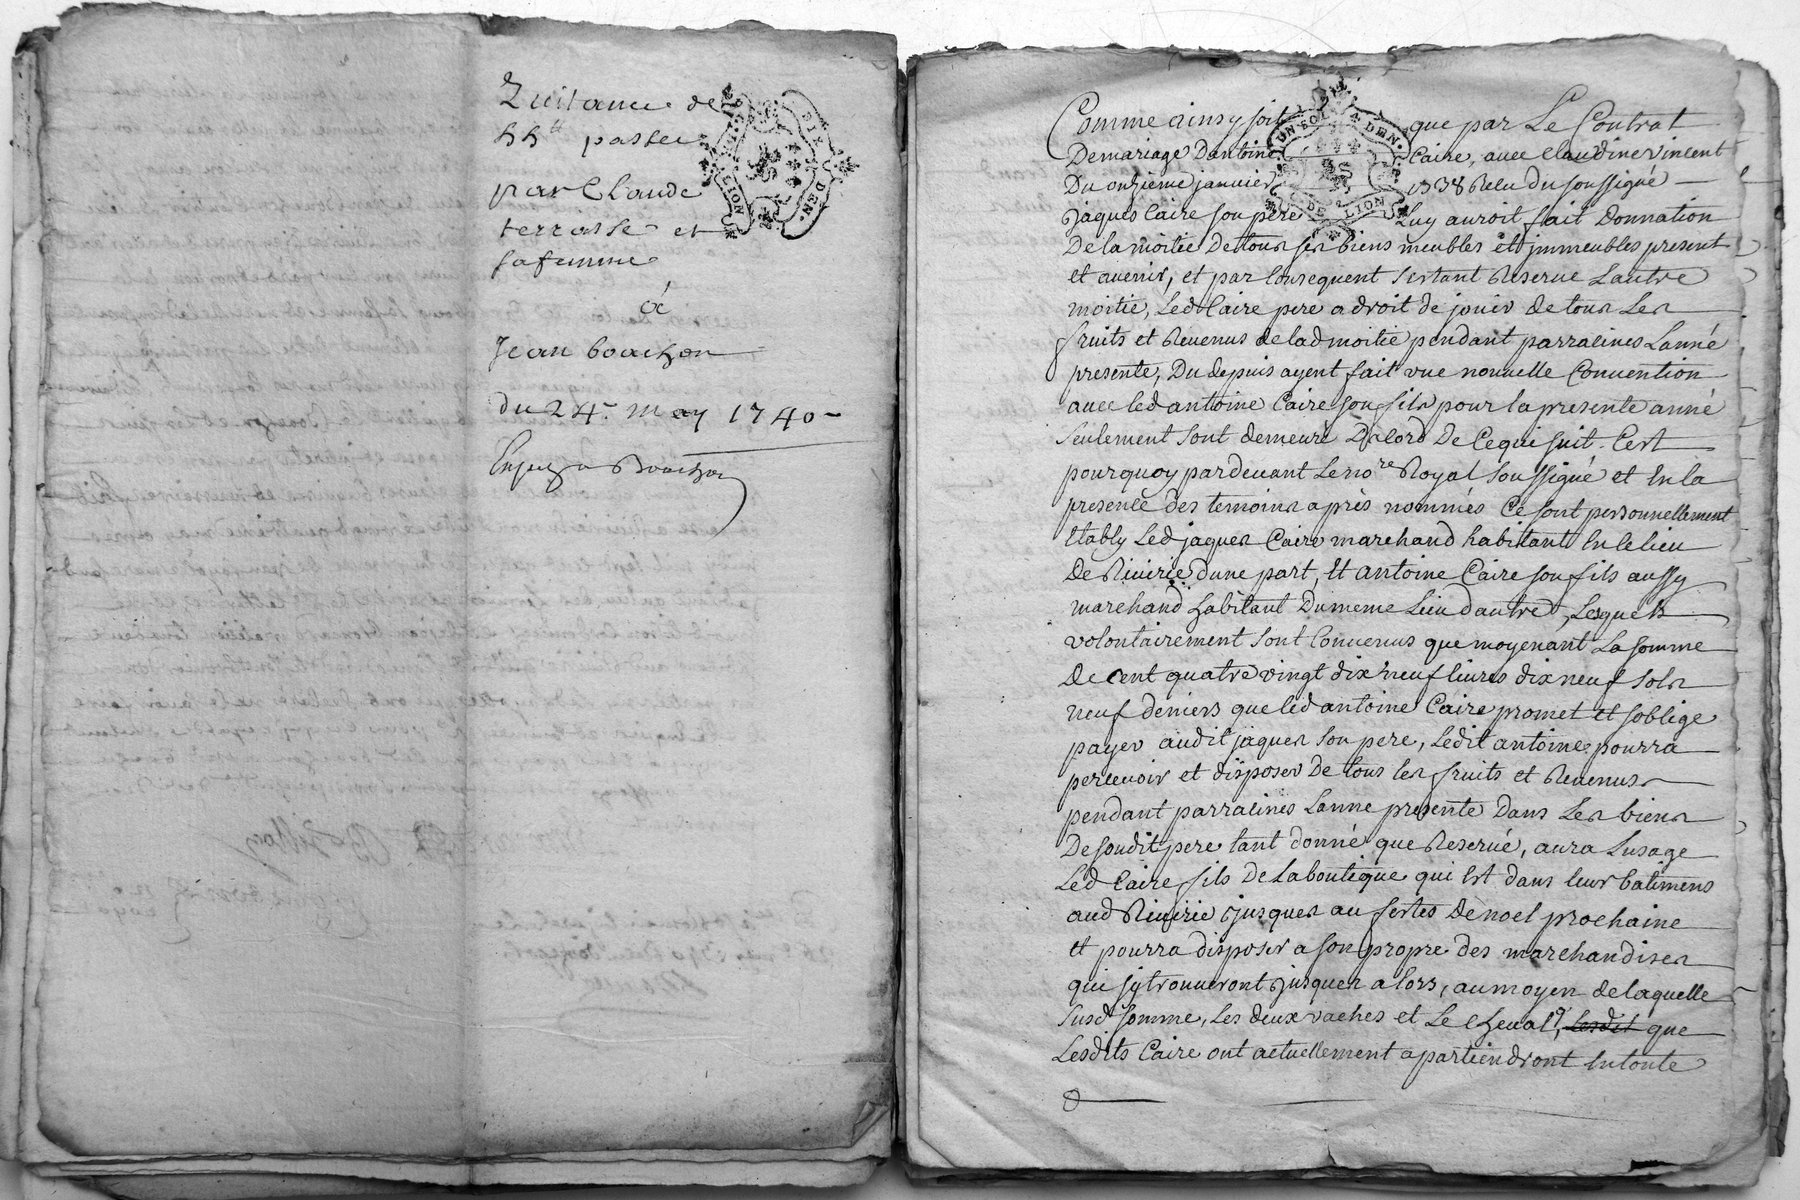 Quitance de
55ᵗᵗ passée
par Claude
terrasse et
sa femme
à
Jean bouchon
du 24. may 1740
Bouchon
UN SOL 4 DEN.
DE LION
Comme ainsy soit que par Le Contrat
De mariage Dantoine Caire, avec Claudine vincent
Du onzieme janvier 1738 Receu du soussigné
jaques Caire son pere Luy auroit fait donnation
De la moitié de tous ses biens meubles et jmmeubles present
et avenir, et par Consequent sestant Reservé Lautre
moitié, Led Caire pere a droit de jouir de tous Les
fruits et Revenus de lad moitié pendant parraeines Lanné
presente, Du depuis ayent fait vne nouvelle Convention
avec led antoine Caire son fils pour la presente anné
seulement sont demeuré Dacord De Ce qui suit. Cest
pourquoy pardevant Le noʳᵉ Royal soussigné et En la
presence des temoins après nommés Ce sont personnellement
Etably Led jaques Caire marchand habitant En le lieu
De Riuirie dune part, Et antoine Caire son fils aussy
marchand habitant Du meme Lieu dautre, Lesquels
volontairement sont Convenus que moyenant La somme
De Cent quatre vingt dix neuf livres dix neuf sols
neuf deniers que led antoine Caire promet et soblige
payer audit jaques son pere, Ledit antoine pourra
percevoir et disposer De tous les fruits et Revenus
pendant parraeines Lanne presente Dans Les biens
De soudit pere tant donné que Reservé, aura Lusage
Led Caire fils De La boutique qui Est dans leur batimens
aud Riuirie jusques au festes de noel prochaine
Et pourra disposer a son propre des marchandises
qui sy trouveront jusques alors, au moyen de laquelle
susd somme, Les deux vaches et Le cheval, Lesdit que
Lesdits Caire ont actuellement apartiendront En toute